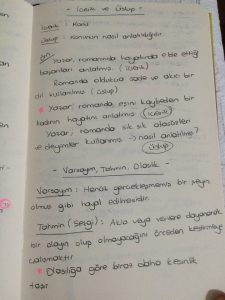 - İçerik ve Üslup -
İçerik : Konu
Üslup : Konunun nasıl anlatıldığıdır.
Yazar, romanında hayatında elde ettiği
başarıları anlatmış. (İçerik)
Romanda oldukça sade ve akıcı bir
dil kullanılmış (Üslup)
* Yazar, romanda eşini kaybeden bir
kadının hayatını anlatmış. (İçerik)
Yazar, romanda sık sık atasözleri
ve deyimler kullanmış → nasıl anlatılmış?
(Üslup)
- Varsayım, Tahmin, Olasılık -
Varsayım : Henüz gerçekleşmemiş bir şeyin
olmuş gibi hayal edilmesidir.
Tahmin (Sezgi) : Akla veya verilere dayanarak
bir olayın olup olmayacağını önceden kestirmeye
çalışmaktır
* Olasılığa göre biraz daha kesinlik
taşır